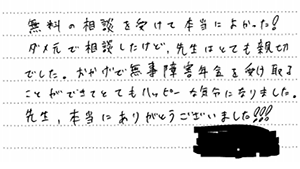 無料の相談を受けて本当によかった!
ダメ元で相談したけど、先生はとても親切
でした。おかげで無事障害年金を受け取る
ことができてとてもハッピーな気分になりました。
先生、本当にありがとうございました!!!